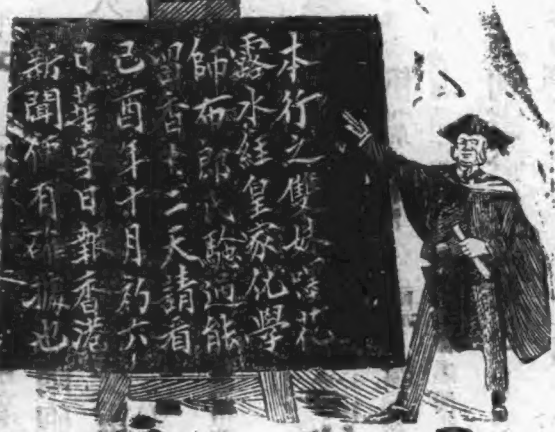 本行之雙妹嘜花
露水經皇家化學
師布郎氏驗過能
留香十二天請看
己酉年十月初六
日華字日報香港
新聞便有確據也